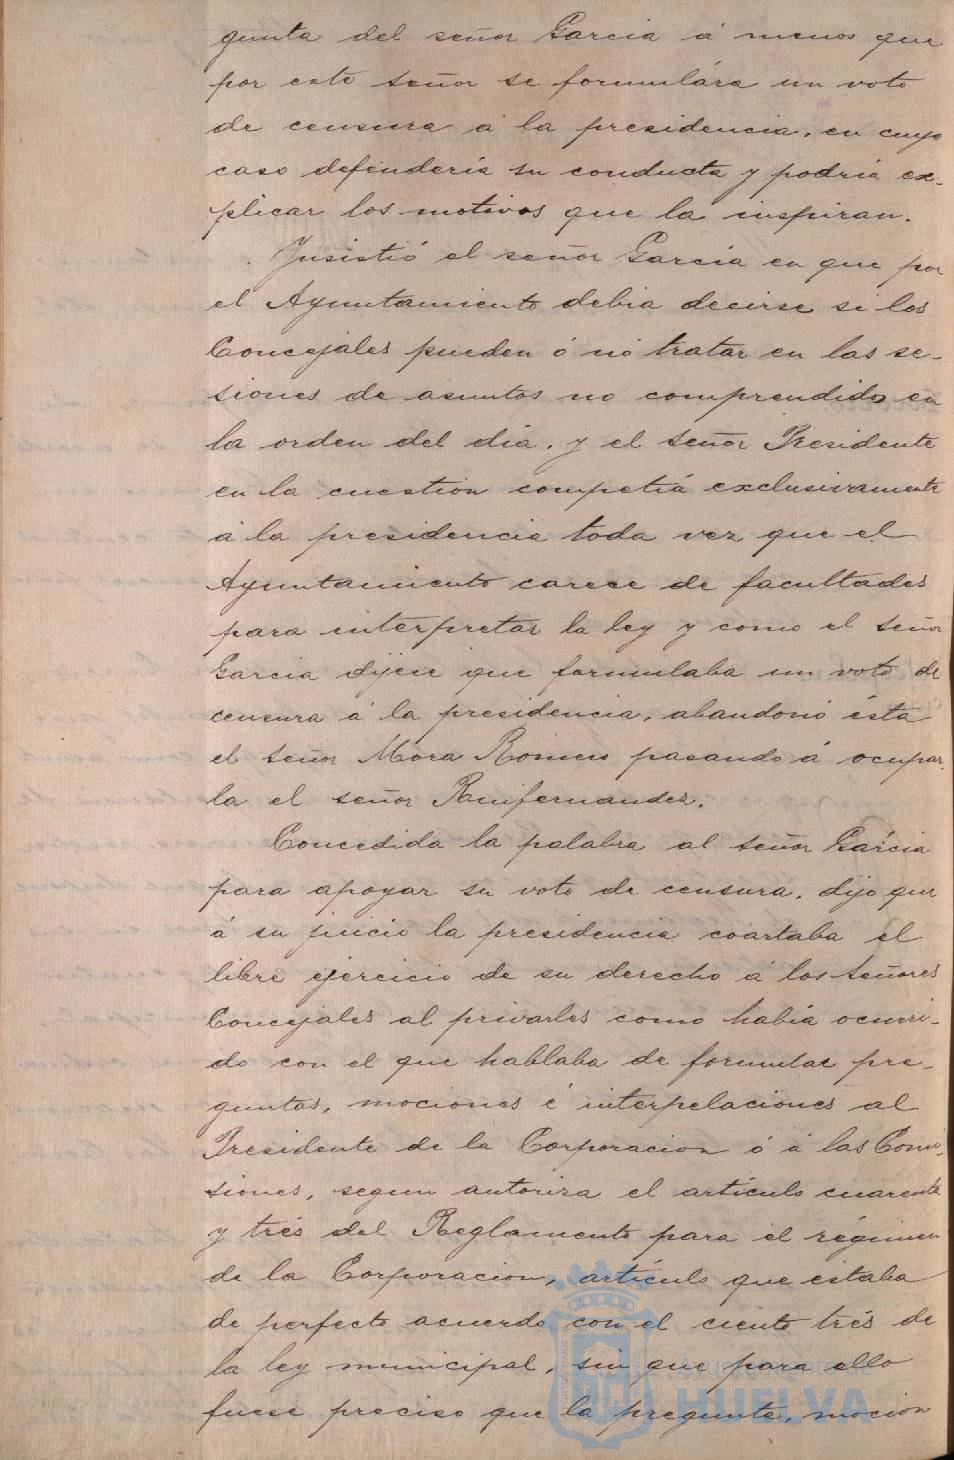 gunta del señor Garcia á menos que
por este señor se formulára un voto
de censura á la presidencia, en cuyo
caso defendería su conducta y podría ex-
plicar los motivos que la inspiran.
Insistió el señor Garcia en que por
el Ayuntamiento debia decirse si los
Concejales pueden ó nó tratar en las se-
siones de asuntos no comprendidos en
la orden del día, y el señor Presidente
en la cuestion competiá exclusivamente
á la presidencia toda vez que el
Ayuntamiento carece de facultades
para interpretar la ley y como el señor
Garcia dijese que formulaba un voto de
censura á la presidencia, abandonó ésta
el señor Mora Romero pasando á ocupar-
la el señor Ruifernandez.
Concedida la palabra al señor García
para apoyar su voto de censura, dijo que
á su juicio la presidencia coartaba el
libre ejercicio de su derecho á los señores
Concejales al privarles como había ocurri-
do con el que hablaba de formular pre-
guntas, mociones é interpelaciones al
Presidente de la Corporacion ó á las Comi-
siones, segun autoriza el artículo cuarenta
y trés del Reglamento para el régimen
de la Corporacion, artículo que estaba
de perfecto acuerdo con el ciento trés de
la ley municipal, sin que para ello
fuese preciso que la pregunta, mocion
Ayuntamiento de
HUELVA